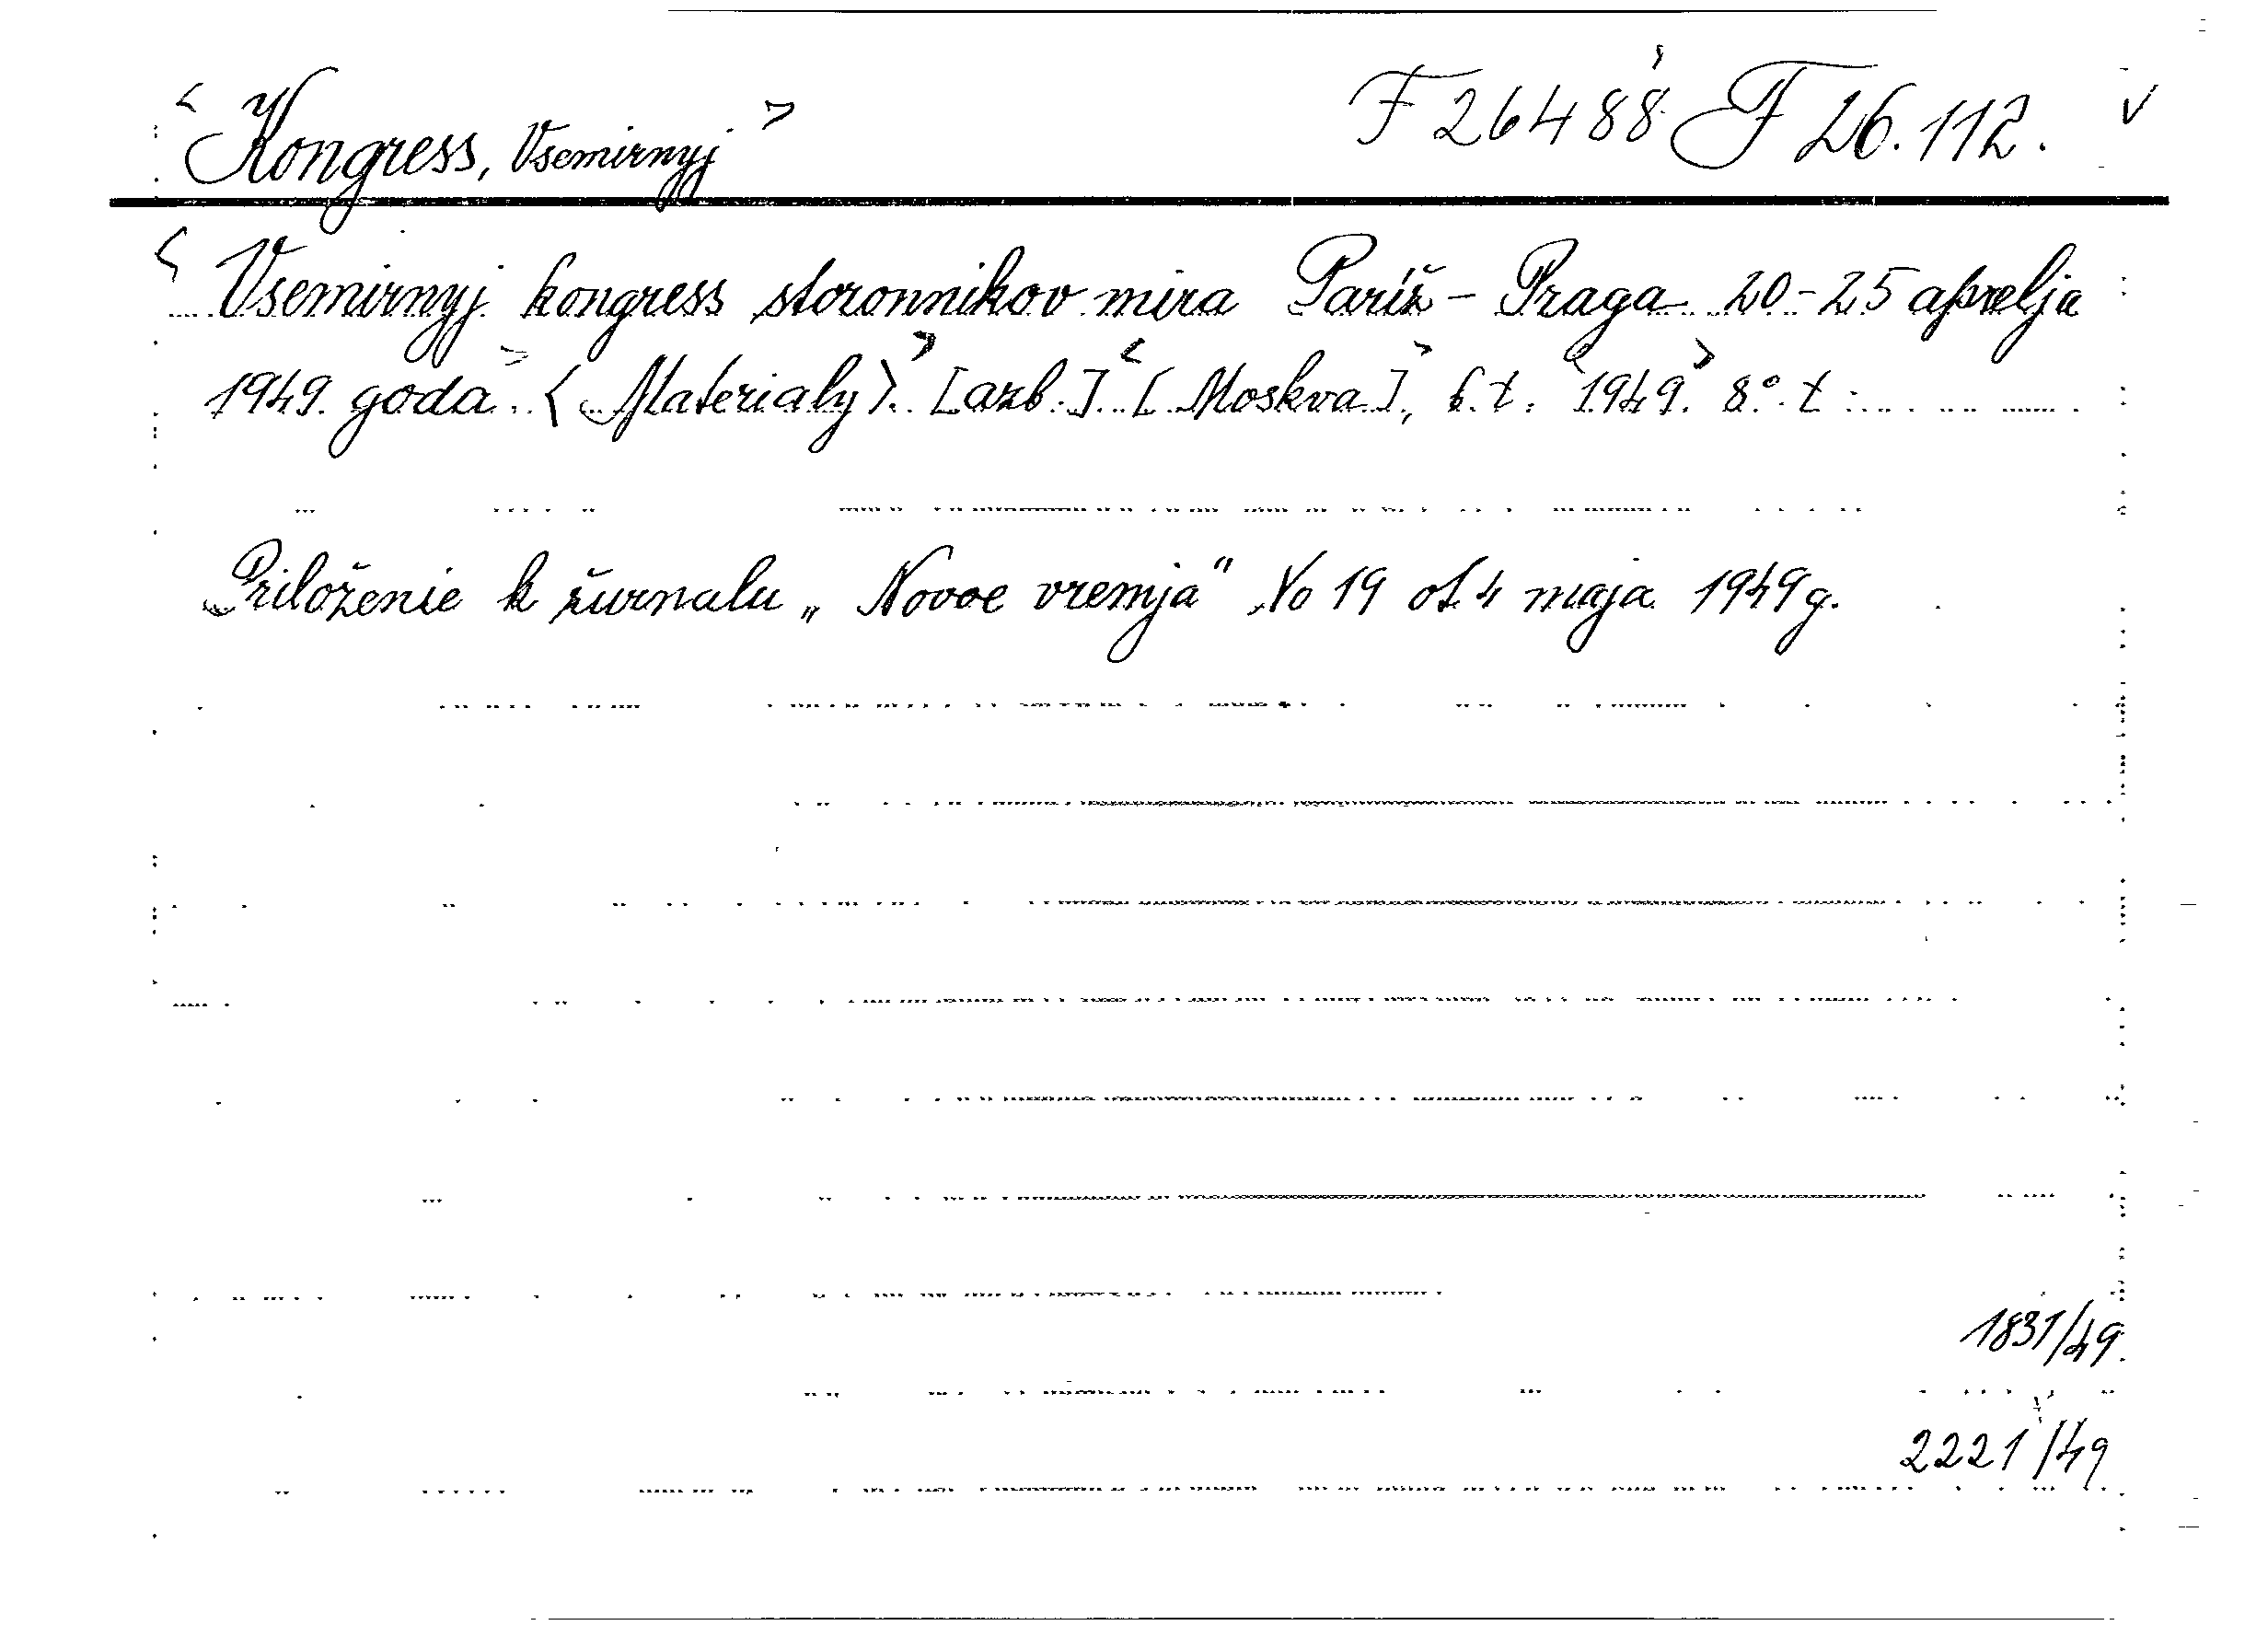 < Kongress, Vsemirnyj > F 26488 F 26.112. v
< Vsemirnyj kongress storonnikov mira Pariž - Praga 20-25 aprelja
1949. goda > < Materialy >. > [azb.] < [Moskva], > b.t. < 1949. > 8°. t :
Priloženie k žurnalu „Novoe vremja“ No 19 ot 4 maja 1949 g.
1831/49.
2221/49